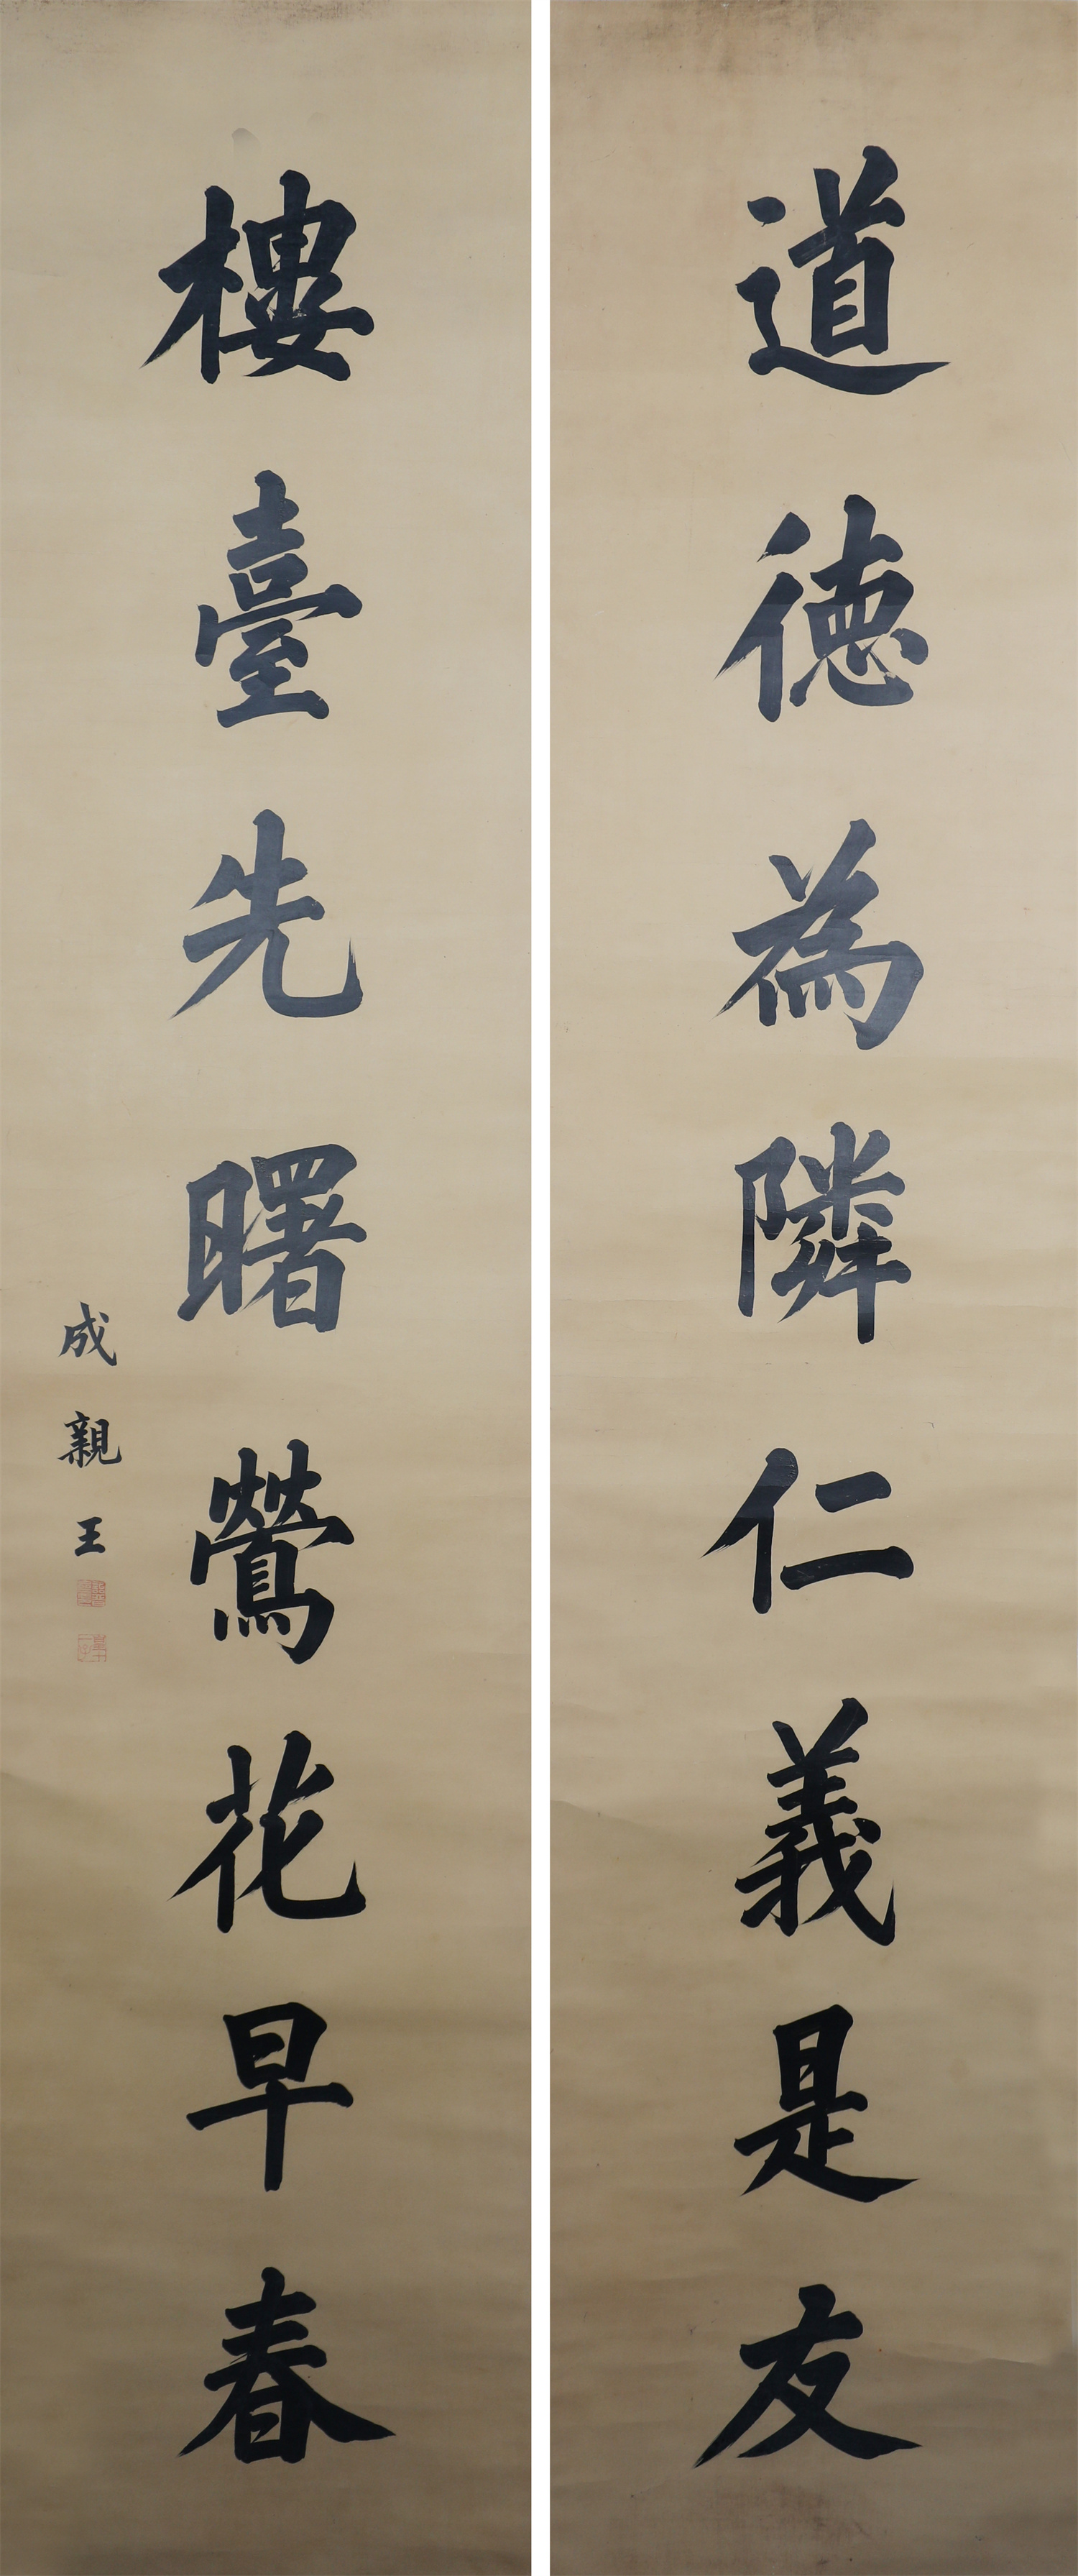 道徳為隣仁義是友
樓臺先曙鶯花早春
成親王